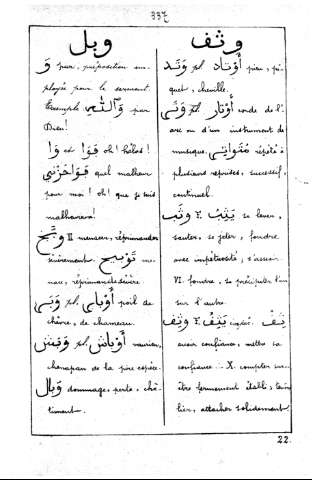 337
وبل
وَ par, préposition em-
ployée pour le serment.
Exemple وَٱللّٰهِ par
Dieu!
وَا et وَا oh! hélas!
quel malheur
pour moi! oh! que je suis
malheureux!
وَبَّخَ II menacer, réprimander
sévèrement. تَوْبِيخ me-
nace, réprimande sévère.
وَبَر pl. أَوْبَار poil de
chèvre, de chameau.
وَبَش pl. أَوْبَاش vaurien,
chenapan de la pire espèce.
وَبَال dommage, perte, châ-
timent.
وثف
وَتَد pl. أَوْتَاد pieu, pi-
quet, cheville.
وَتَر pl. أَوْتَار corde de l'
arc ou d'un instrument de
musique. répété à
plusieurs reprises, successif,
continuel.
وَثَب i يَثِب se lever,
sauter, se jeter, fondre
avec impétuosité, s'asseoir
VI. fondre, se précipiter l'un
sur l'autre.
وَثِف i يَثِفُ ثِفْ
avoir confiance, mettre sa
confiance. X. compter sur
être fermement établi,
lier, attacher solidement
22.